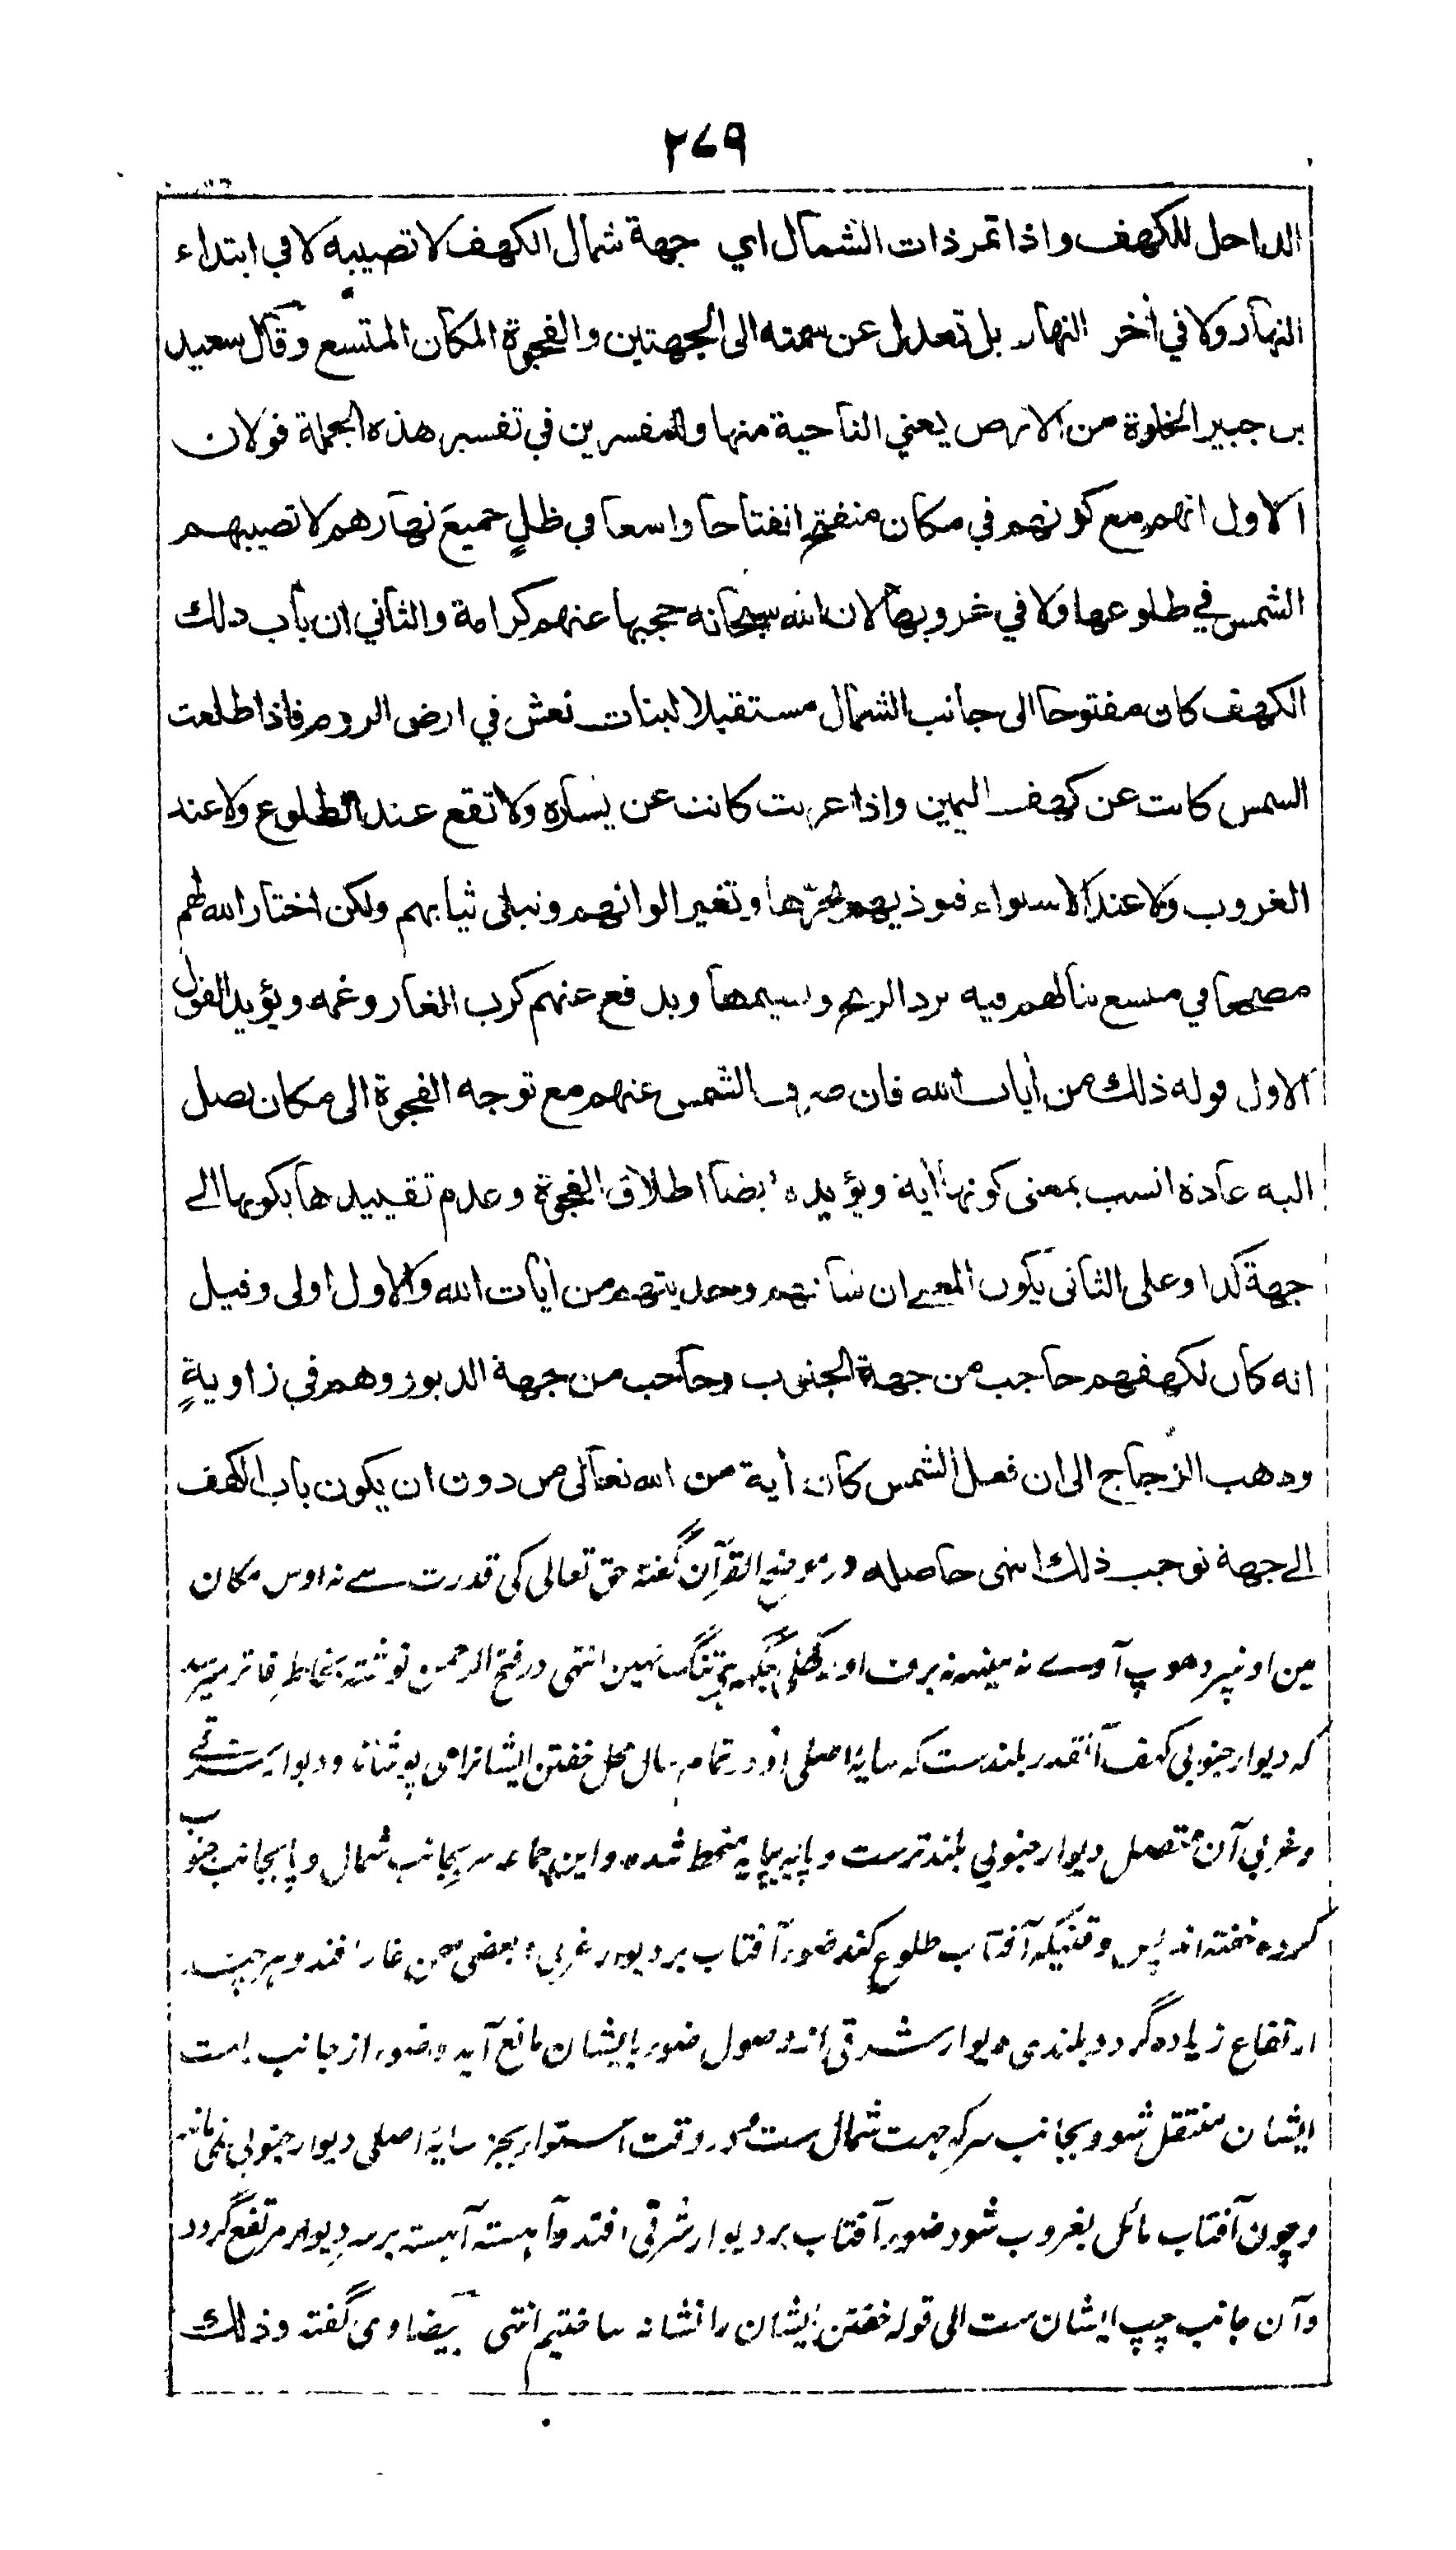 ۲۷۹
الداخل للكهف واذا تمر ذات الشمال اي جهة شمال الكهف لا تصيبه لا في ابتداء
النهار ولا في أخر النهار بل تعدل عن سمته الى الجهتين والفجوة المكان المتسع وقال سعيد
بن جبير الخلوة من الارض يعني الناحية منها وللمفسرين في تفسير هذه الجملة قولان
الاول انهم مع كونهم في مكان منفتح انفتاحا واسعا في ظلٍ جميعَ نهارهم لا تصيبهم
الشمس في طلوعها ولا في غروبها لان الله سبحانه حجبها عنهم كرامة والثاني ان باب ذلك
الكهف كان مفتوحا الى جانب الشمال مستقبلا لبنات نعش في ارض الروم فاذا طلعت
الشمس كانت عن كهف اليمين واذا غربت كانت عن يساره ولا تقع عند الطلوع ولا عند
الغروب ولا عند الاستواء فتوذيهم بحرّها وتغير الوانهم وتبلى ثيابهم ولكن اختار الله لهم
مضجعا في متسع ينالهم فيه برد الريح ونسيمها ويدفع عنهم كرب الغار وغمه ويؤيد القول
الاول قوله ذلك من أيات الله فان صرف الشمس عنهم مع توجه الفجوة الى مكان تصل
اليه عادة انسب بمعنى كونها أية ويؤيده ايضا اطلاق الفجوة وعدم تقييدها بكونها الے
جهة كذا وعلى الثاني يكون المعنے ان شانهم وحديثهم من أيات الله والاول اولى وقيل
انه كان لكهفهم حاجب من جهة الجنوب وحاجب من جهة الدبور وهم في زاويةٍ
وذهب الزجاج الى ان فعل الشمس كان أية من الله تعالى من دون ان يكون باب الكهف
الے جهة توجب ذلك انتهى حاصله در موضح القرآن گفته حق تعالی کی قدرت سے نہ اوس مکان
مین اونپر دھوپ آوے نہ مینہہ نہ برف اور کھلی جگہہ ہے تنگ نہین انتهی در فتح الرحمن نوشته بخاطر فاتر میرسد
که دیوار جنوبی کهف آنقدر بلندست که سایۀ اصلی او در تمام سال محل خفتن ایشانرا می پوشاند و دیوار شرقے
وغربی آن متصل دیوار جنوبی بلندترست و پایه بپایه منحط شده و این جماعه سر بجانب شمال و پا بجانب جنوب
کرده خفته اند پس وقتیکه آفتاب طلوع کند ضوء آفتاب بر دیوار غربی و بعضی صحن غار افتد و هرچند
ارتفاع زیاده گردد بلندی دیوار شرقی از وصول ضوء بایشان مانع آید و ضوء از جانب راست
ایشان منتقل شود و بجانب سر که جهت شمال ست و در وقت استواء بجز سایۀ اصلی دیوار جنوبی نمی ماند
و چون آفتاب مائل بغروب شود ضوء آفتاب بر دیوار شرقی افتد و آهسته آهسته بر سر دیوار مرتفع گردد
و آن جانب چپ ایشان ست الی قوله خفتن ایشان را نشانه ساختیم انتهی بیضاوی گفته وذلك